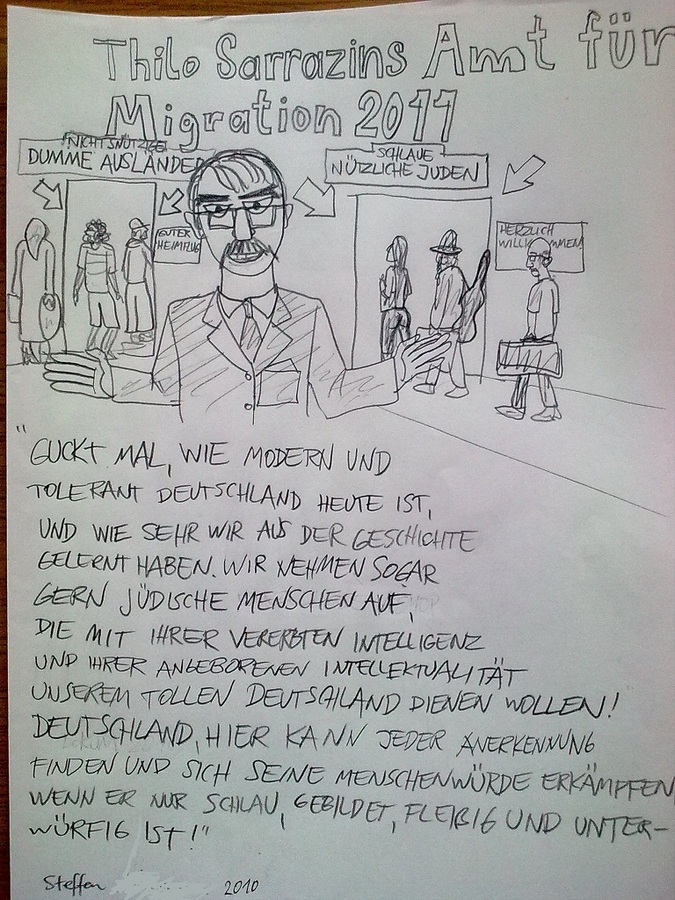 Thilo Sarrazins Amt für
Migration 2011
NICHTSNÜTZIGE
DUMME AUSLÄNDER
SCHLAUE
NÜTZLICHE JUDEN
GUTEN
HEIMFLUG
HERZLICH
WILLKOMMEN
"GUCKT MAL, WIE MODERN UND
TOLERANT DEUTSCHLAND HEUTE IST,
UND WIE SEHR WIR AUS DER GESCHICHTE
GELERNT HABEN. WIR NEHMEN SOGAR
GERN JÜDISCHE MENSCHEN AUF,
DIE MIT IHRER VERERBTEN INTELLIGENZ
UND IHRER ANGEBORENEN INTELLEKTUALITÄT
UNSEREM TOLLEN DEUTSCHLAND DIENEN WOLLEN!
DEUTSCHLAND, HIER KANN JEDER ANERKENNUNG
FINDEN UND SICH SEINE MENSCHENWÜRDE ERKÄMPFEN,
WENN ER NUR SCHLAU, GEBILDET, FLEIßIG UND UNTER-
WÜRFIG IST!"
Steffen 2010